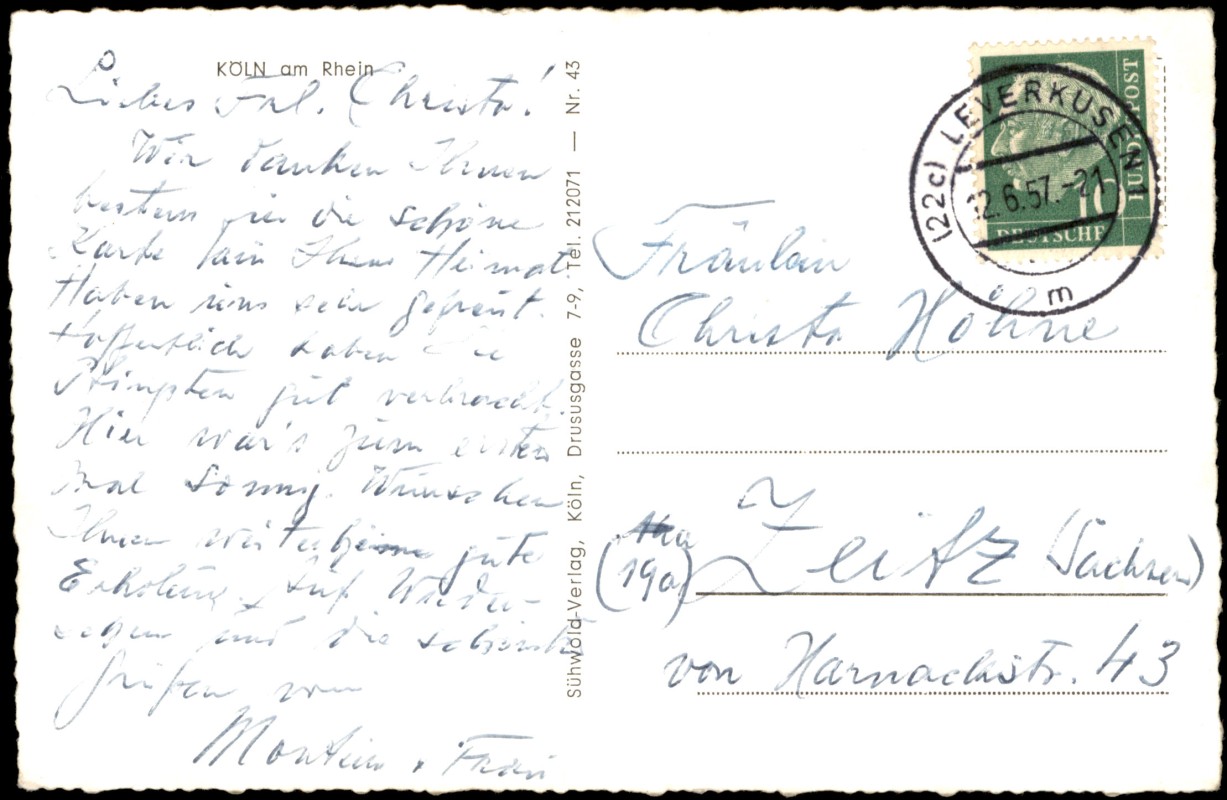 KÖLN am Rhein
Liebes Frl. Christa!
Wir danken Ihnen
bestens für die schöne
Karte Ihrer Heimat.
Haben uns sehr gefreut.
Hoffentlich haben Sie
Pfingsten gut verbracht.
Hier war's zum ersten
Mal sonnig. Wünschen
Ihnen weiterhin gute
Erholung. Auf Wieder-
sehen und die schönsten
Grüßen von
Frau
Sühwold-Verlag, Köln, Drususgasse 7-9, Tel. 212071 — Nr. 43
(22c) LEVERKUSEN 1
12.6.57.-21
m
DEUTSCHE
BUNDESPOST
10
Fräulein
Christa Höhne
(19a) Zeitz (Sachsen)
von Harnackstr. 43